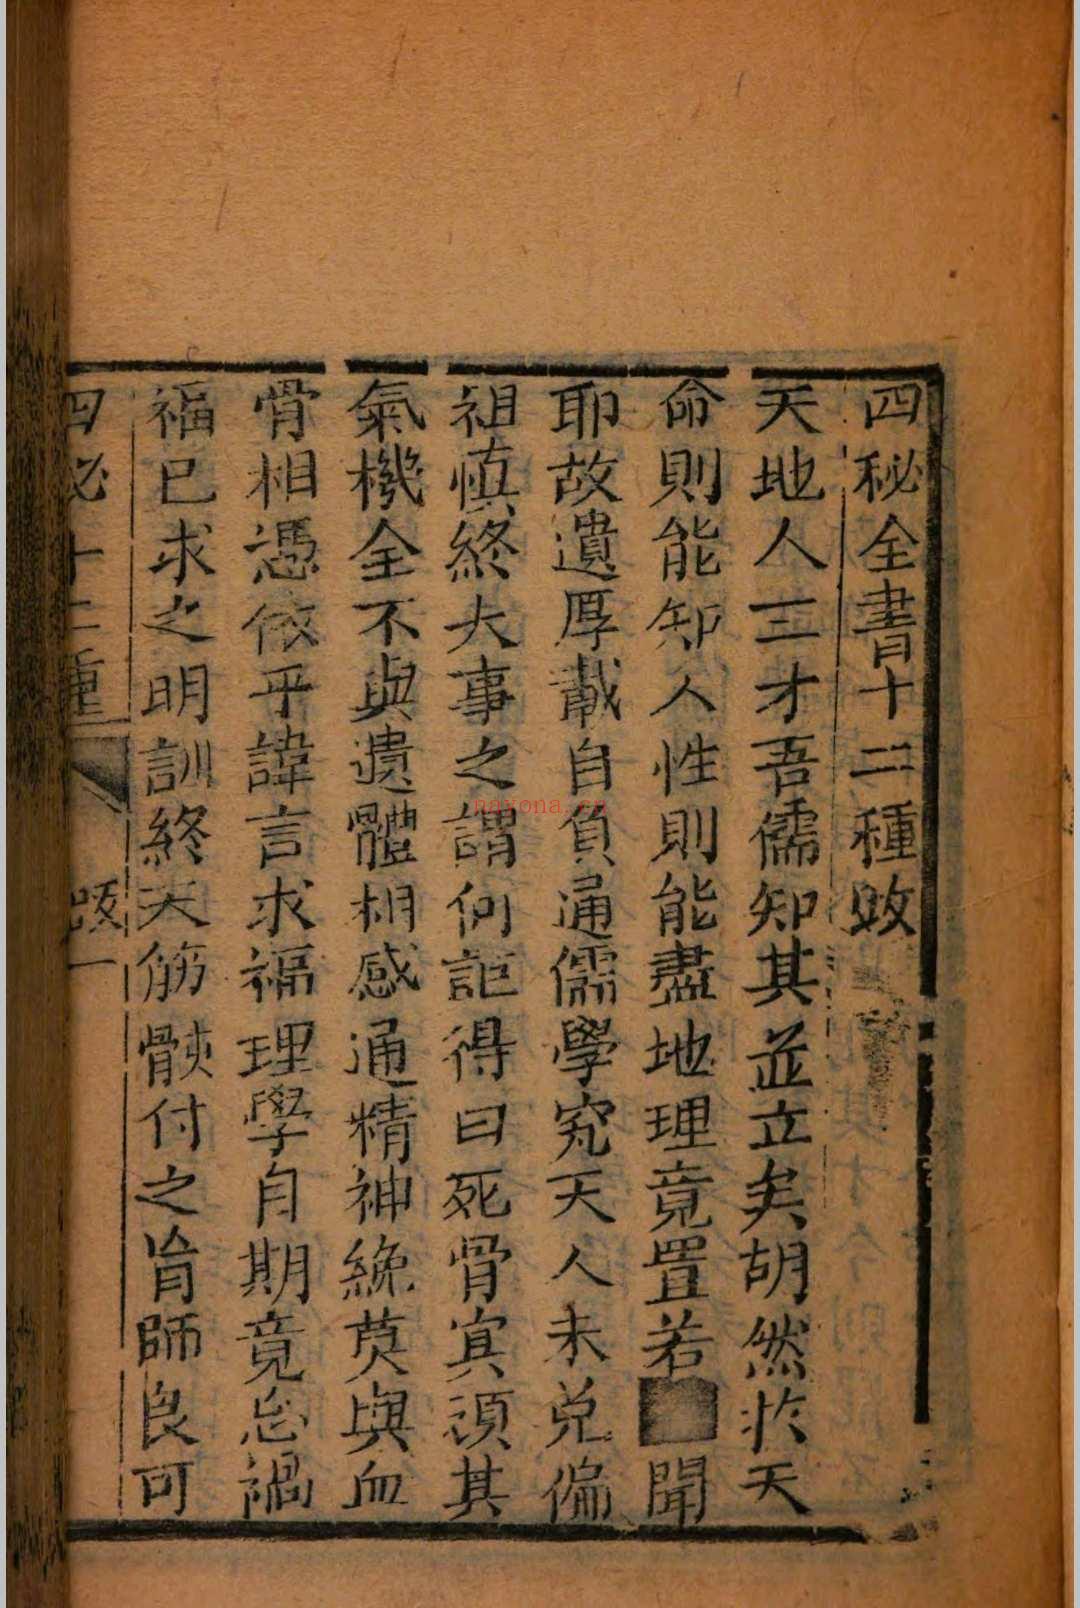 四秘全書十二種跋
天地人三才吾儒知其並立矣胡然於天
命則能知人性則能盡地理竟置若聞
耶故遺厚載自負通儒學究天人未免偏
祖慎終大事之謂何詎得曰死骨寘須其
氣機全不與遺體相感通精神絶莫與血
骨相憑依乎諱言求福理學自期竟忘禍
福已求之明訓終天筋骸付之盲師良可
四秘十二種 跋 一
nayona.cn